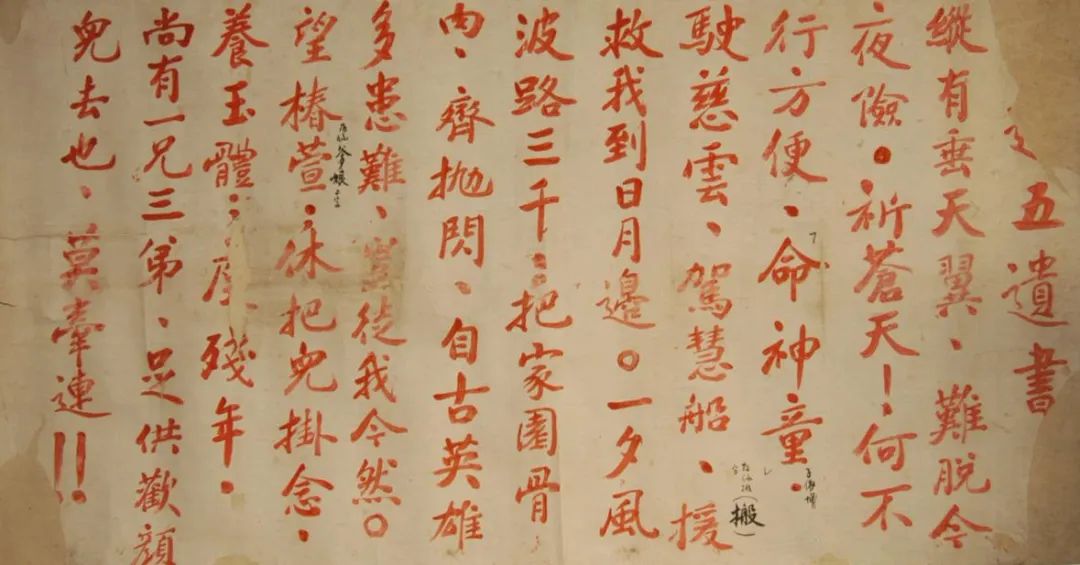 五遺書
縱有垂天翼、難脱今
夜險。祈蒼天！何不
行方便、命神童．
駛慈雲、駕慧船、援
（搬）
救我到日月邊。一夕風
波路三千；把家園骨
肉、齊抛閃、自古英雄
多患難、豈徒我今然。
爹娘
望椿萱；休把兒掛念．
養玉體；度殘年．
尚有一兄三弟、足供歡顔
兒去也、莫牽連！！